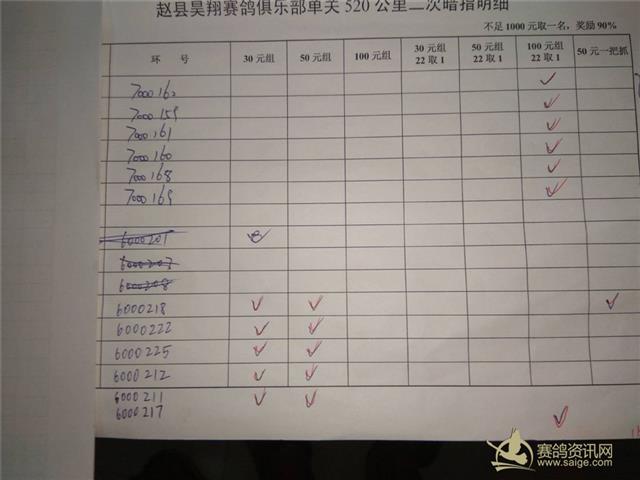 赵县昊翔赛鸽俱乐部单关 520 公里二次暗指明细
不足 1000 元取一名，奖励 90%
环 号 30 元组 50 元组 100 元组 30 元组 22 取 1 50 元组 22 取 1 100 元组 22 取 1 50 元一把抓
7000162 ✓
7000159 ✓
7000161 ✓
7000160 ✓
7000168 ✓
7000169 ✓
6000201
6000207
6000208
6000218 ✓ ✓ ✓
6000222 ✓ ✓
6000225 ✓ ✓
6000212 ✓ ✓
6000211 ✓ ✓
6000217 ✓
赛鸽资讯网
www.saige.com